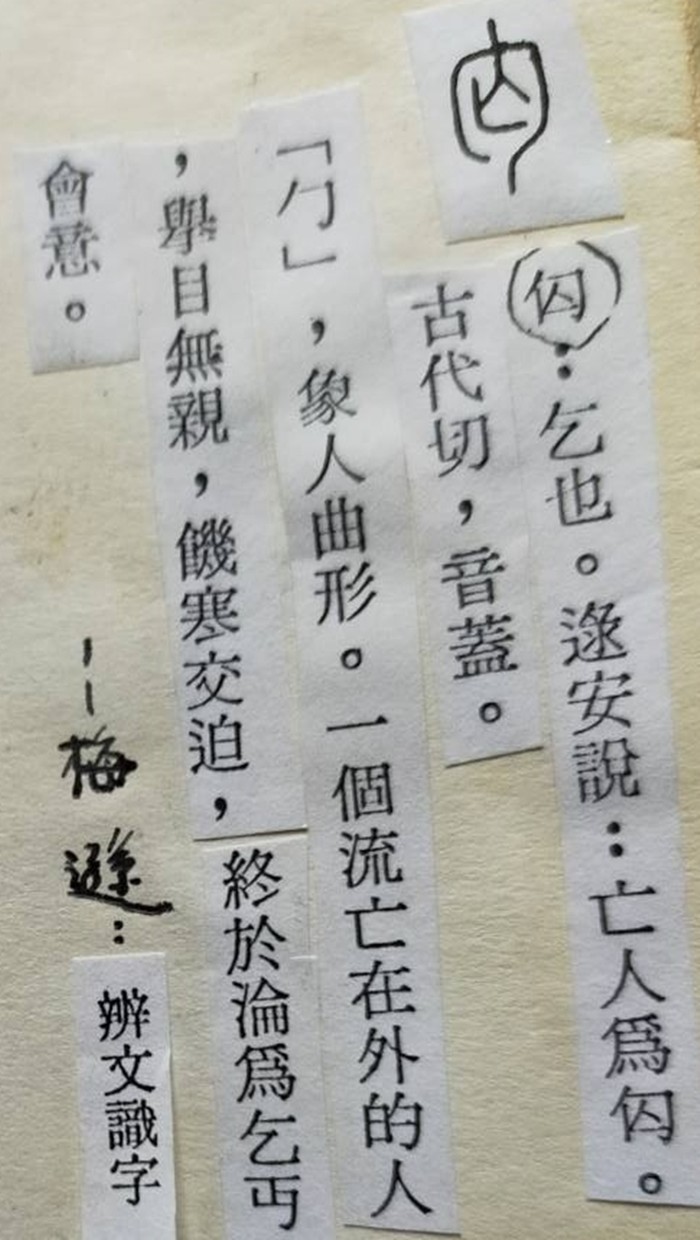 匃：乞也。逯安說：亡人爲匃。
古代切，音蓋。
「勹」，象人曲形。一個流亡在外的人
，舉目無親，饑寒交迫，終於淪爲乞丐
會意。
——梅遜：辨文識字